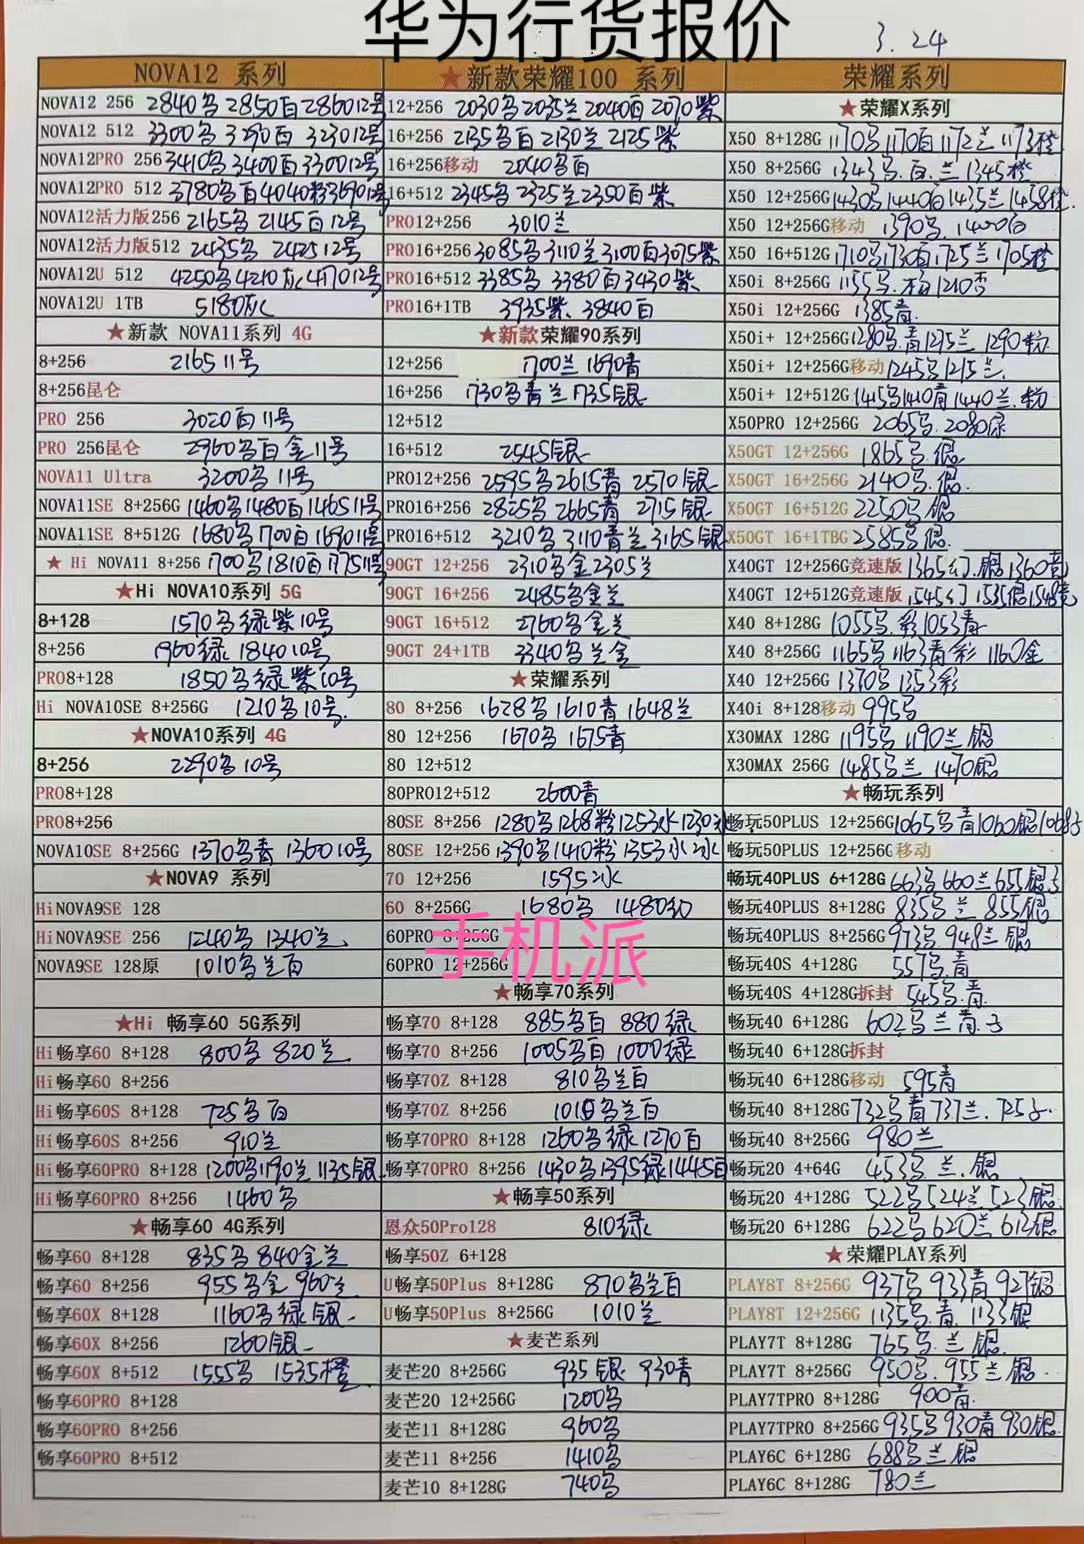 华为行货报价
3.24
NOVA12 系列
NOVA12 256 2840 2850白 2860 12号
NOVA12 512 3300 3290白 3230 12号
NOVA12PRO 256 3410 3400白 3300 12号
NOVA12PRO 512 3780 白4040粉3690 12号
NOVA12活力版256 2165 2145白 12号
NOVA12活力版512 2435 2425 12号
NOVA12U 512 4250 4210灰 4170 12号
NOVA12U 1TB 5180灰
★新款 NOVA11系列 4G
8+256 2165 11号
8+256昆仑
PRO 256 3020白 11号
PRO 256昆仑 2960 白金 11号
NOVA11 Ultra 3200 11号
NOVA11SE 8+256G 1460 1480白 1465 11号
NOVA11SE 8+512G 1680 1700白 1690 11号
★ Hi NOVA11 8+256 1700 1810白 1775 11号
★Hi NOVA10系列 5G
8+128 1570 绿紫 10号
8+256 1960绿 1840 10号
PRO8+128 1850 绿紫 10号
Hi NOVA10SE 8+256G 1210 10号.
★NOVA10系列 4G
8+256 2290 10号
PRO8+128
PRO8+256
NOVA10SE 8+256G 1370 青 1360 10号
★NOVA9 系列
HiNOVA9SE 128
HiNOVA9SE 256 1240 1340兰
NOVA9SE 128原 1010 兰白
★Hi 畅享60 5G系列
Hi畅享60 8+128 800 820兰
Hi畅享60 8+256
Hi畅享60S 8+128 725 白
Hi畅享60S 8+256 910兰
Hi畅享60PRO 8+128 1200 1190兰 1135银
Hi畅享60PRO 8+256 1460
★畅享60 4G系列
畅享60 8+128 835 840金兰
畅享60 8+256 955 金 960兰
畅享60X 8+128 1160 绿银
畅享60X 8+256 1260银
畅享60X 8+512 1555 1535橙
畅享60PRO 8+128
畅享60PRO 8+256
畅享60PRO 8+512
★新款荣耀100 系列
12+256 2030 2035兰 2040白 2070紫
16+256 2135 白 2130兰 2125紫
16+256移动 2040 白
16+512 2345 2325兰 2350白紫
PRO12+256 3010兰
PRO16+256 3085 3110兰 3100白 3075紫
PRO16+512 3385 3380白 3430紫
PRO16+1TB 3935紫. 3840白
★新款荣耀90系列
12+256 1700兰 1690青
16+256 1730 青兰 1735银
12+512
16+512 2545银
PRO12+256 2595 2615青 2570银
PRO16+256 2825 2665青 2715银
PRO16+512 3210 3110青兰 3165银
90GT 12+256 2310 金 2305兰
90GT 16+256 2485 金兰
90GT 16+512 2760 金兰
90GT 24+1TB 3340 兰金
★荣耀系列
80 8+256 1628 1610青 1648兰
80 12+256 1670 1675青
80 12+512
80PRO12+512 2600青
80SE 8+256 1280 1268粉 1253冰 1230
80SE 12+256 1390 1410粉 1353冰
70 12+256 1595冰
60 8+256G 1680 1480幻
60PRO 8+256G
60PRO 12+256G
手机派
★畅享70系列
畅享70 8+128 885 白 880绿
畅享70 8+256 1005 白 1000绿
畅享70Z 8+128 810 兰白
畅享70Z 8+256 1010 兰白
畅享70PRO 8+128 1260 绿 1270白
畅享70PRO 8+256 1430 1395绿 1445白
★畅享50系列
恩众50Pro128 810绿
畅享50Z 6+128
U畅享50Plus 8+128G 870 兰白
U畅享50Plus 8+256G 1010兰
★麦芒系列
麦芒20 8+256G 935银 930青
麦芒20 12+256G 1200
麦芒11 8+128G 960
麦芒11 8+256 1410
麦芒10 8+128G 740
荣耀系列
★荣耀X系列
X50 8+128G 1170 1170白 1172兰 1173橙
X50 8+256G 1343 .白.兰 1345橙
X50 12+256G 1430 1440白 1435兰 1458橙
X50 12+256G移动 1390. 1400白
X50 16+512G 1710 1730白 1725兰 1705橙
X50i 8+256G 1155 .粉 1210杏
X50i 12+256G 1385青
X50i+ 12+256G 1280 .青 1295兰 1290粉
X50i+ 12+256G移动 1245 1215兰.
X50i+ 12+512G 1415 1410青 1440兰.粉
X50PRO 12+256G 2065. 2080绿
X50GT 12+256G 1865 .银
X50GT 16+256G 2140 .银
X50GT 16+512G 2250 银
X50GT 16+1TBG 2585 银.
X40GT 12+256G竞速版 1365幻.银 1360青
X40GT 12+512G竞速版 1545幻 1535银 1548青
X40 8+128G 1055 .彩 1053青
X40 8+256G 1165 1163青彩 1160金
X40 12+256G 1370 1353彩
X40i 8+128移动 995
X30MAX 128G 1195 1190兰 银
X30MAX 256G 1485 兰 1470银
★畅玩系列
畅玩50PLUS 12+256G 1065 青 1060银 1068
畅玩50PLUS 12+256G移动
畅玩40PLUS 6+128G 663 660兰 655银
畅玩40PLUS 8+128G 835 兰 855银
畅玩40PLUS 8+256G 973 948兰 银
畅玩40S 4+128G 557 .青
畅玩40S 4+128G拆封 545 .青.
畅玩40 6+128G 602 兰青.
畅玩40 6+128G拆封
畅玩40 6+128G移动 595青
畅玩40 8+128G 732 青 737兰. 725
畅玩40 8+256G 980兰
畅玩20 4+64G 453 兰.银
畅玩20 4+128G 522 524兰 523银
畅玩20 6+128G 622 620兰 613银
★荣耀PLAY系列
PLAY8T 8+256G 937 933青 927银
PLAY8T 12+256G 1135 .青. 1133银
PLAY7T 8+128G 765 .兰 银.
PLAY7T 8+256G 950 . 955兰 银
PLAY7TPRO 8+128G 900青.
PLAY7TPRO 8+256G 935 930青 930银
PLAY6C 6+128G 688 兰 银
PLAY6C 8+128G 780兰